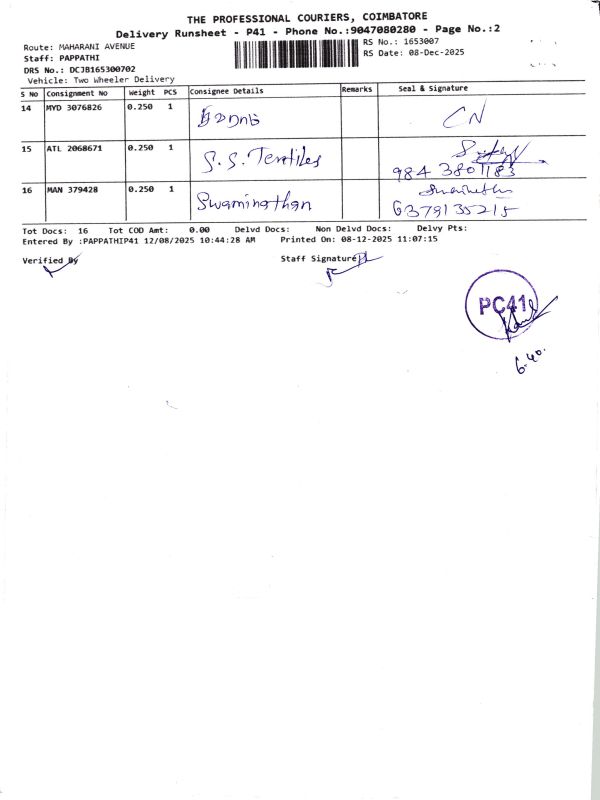 THE PROFESSIONAL COURIERS, COIMBATORE
Delivery Runsheet - P41 - Phone No.:9047080280 - Page No.:2
Route: MAHARANI AVENUE
RS No.: 1653007
Staff: PAPPATHI
RS Date: 08-Dec-2025
DRS No.: DCJB165300702
Vehicle: Two Wheeler Delivery
S No Consignment No Weight PCS Consignee Details Remarks Seal & Signature
14 MYD 3076826 0.250 1 CN
15 ATL 2068671 0.250 1 S.S. Textiles
984 3801183
16 MAN 379428 0.250 1 Swaminathan
6379135215
Tot Docs: 16 Tot COD Amt: 0.00 Delvd Docs: Non Delvd Docs: Delvy Pts:
Entered By :PAPPATHIP41 12/08/2025 10:44:28 AM Printed On: 08-12-2025 11:07:15
Verified By Staff Signature
PC41
6.40.